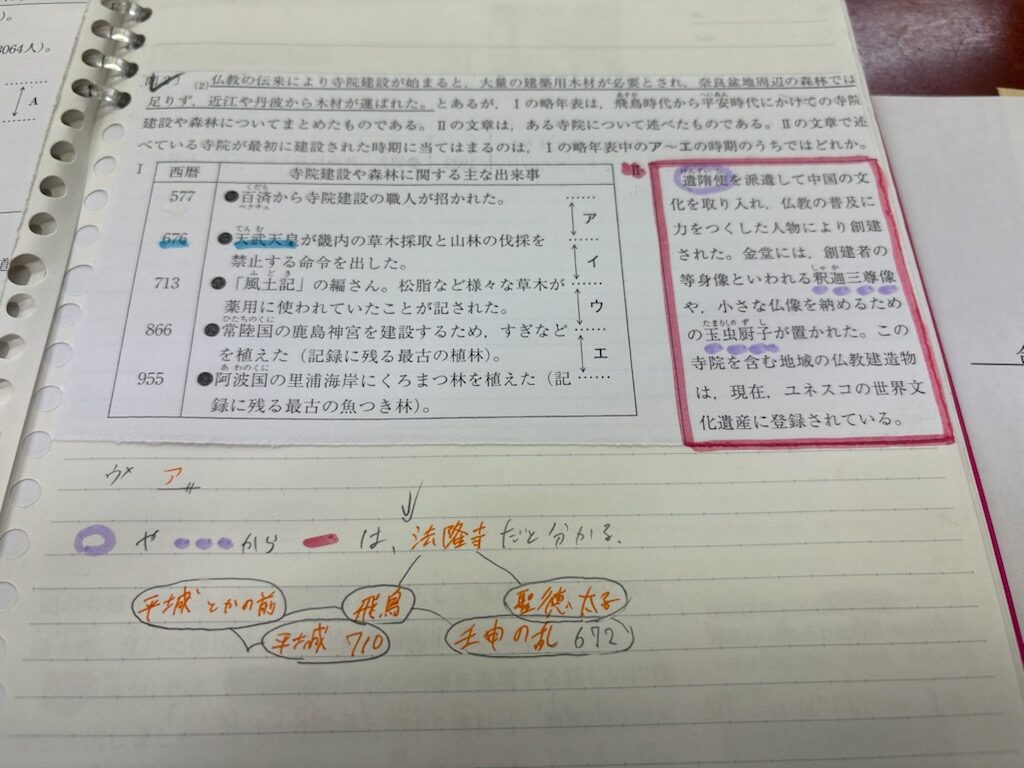 )。
3064人)。
A
〔問2〕 (2)仏教の伝来により寺院建設が始まると，大量の建築用木材が必要とされ，奈良盆地周辺の森林では
足りず，近江や丹波から木材が運ばれた。とあるが，Ⅰの略年表は，飛鳥時代から平安時代にかけての寺院
建設や森林についてまとめたものである。Ⅱの文章は，ある寺院について述べたものである。Ⅱの文章で述
べている寺院が最初に建設された時期に当てはまるのは，Ⅰの略年表中のア～エの時期のうちではどれか。
Ⅰ
西暦 寺院建設や森林に関する主な出来事
577 ●百済から寺院建設の職人が招かれた。
ア
676 ●天武天皇が畿内の草木採取と山林の伐採を
禁止する命令を出した。
イ
713 ●「風土記」の編さん。松脂など様々な草木が
薬用に使われていたことが記された。
ウ
866 ●常陸国の鹿島神宮を建設するため，すぎなど
を植えた（記録に残る最古の植林）。
エ
955 ●阿波国の里浦海岸にくろまつ林を植えた（記
録に残る最古の魚つき林）。
Ⅱ
遣隋使を派遣して中国の文
化を取り入れ，仏教の普及に
力をつくした人物により創建
された。金堂には，創建者の
等身像といわれる釈迦三尊像
や，小さな仏像を納めるため
の玉虫厨子が置かれた。この
寺院を含む地域の仏教建造物
は，現在，ユネスコの世界文
化遺産に登録されている。
ウ× ア
や から は、法隆寺だと分かる.
平城とかの前 飛鳥 聖徳太子
平城 710 壬申の乱 672